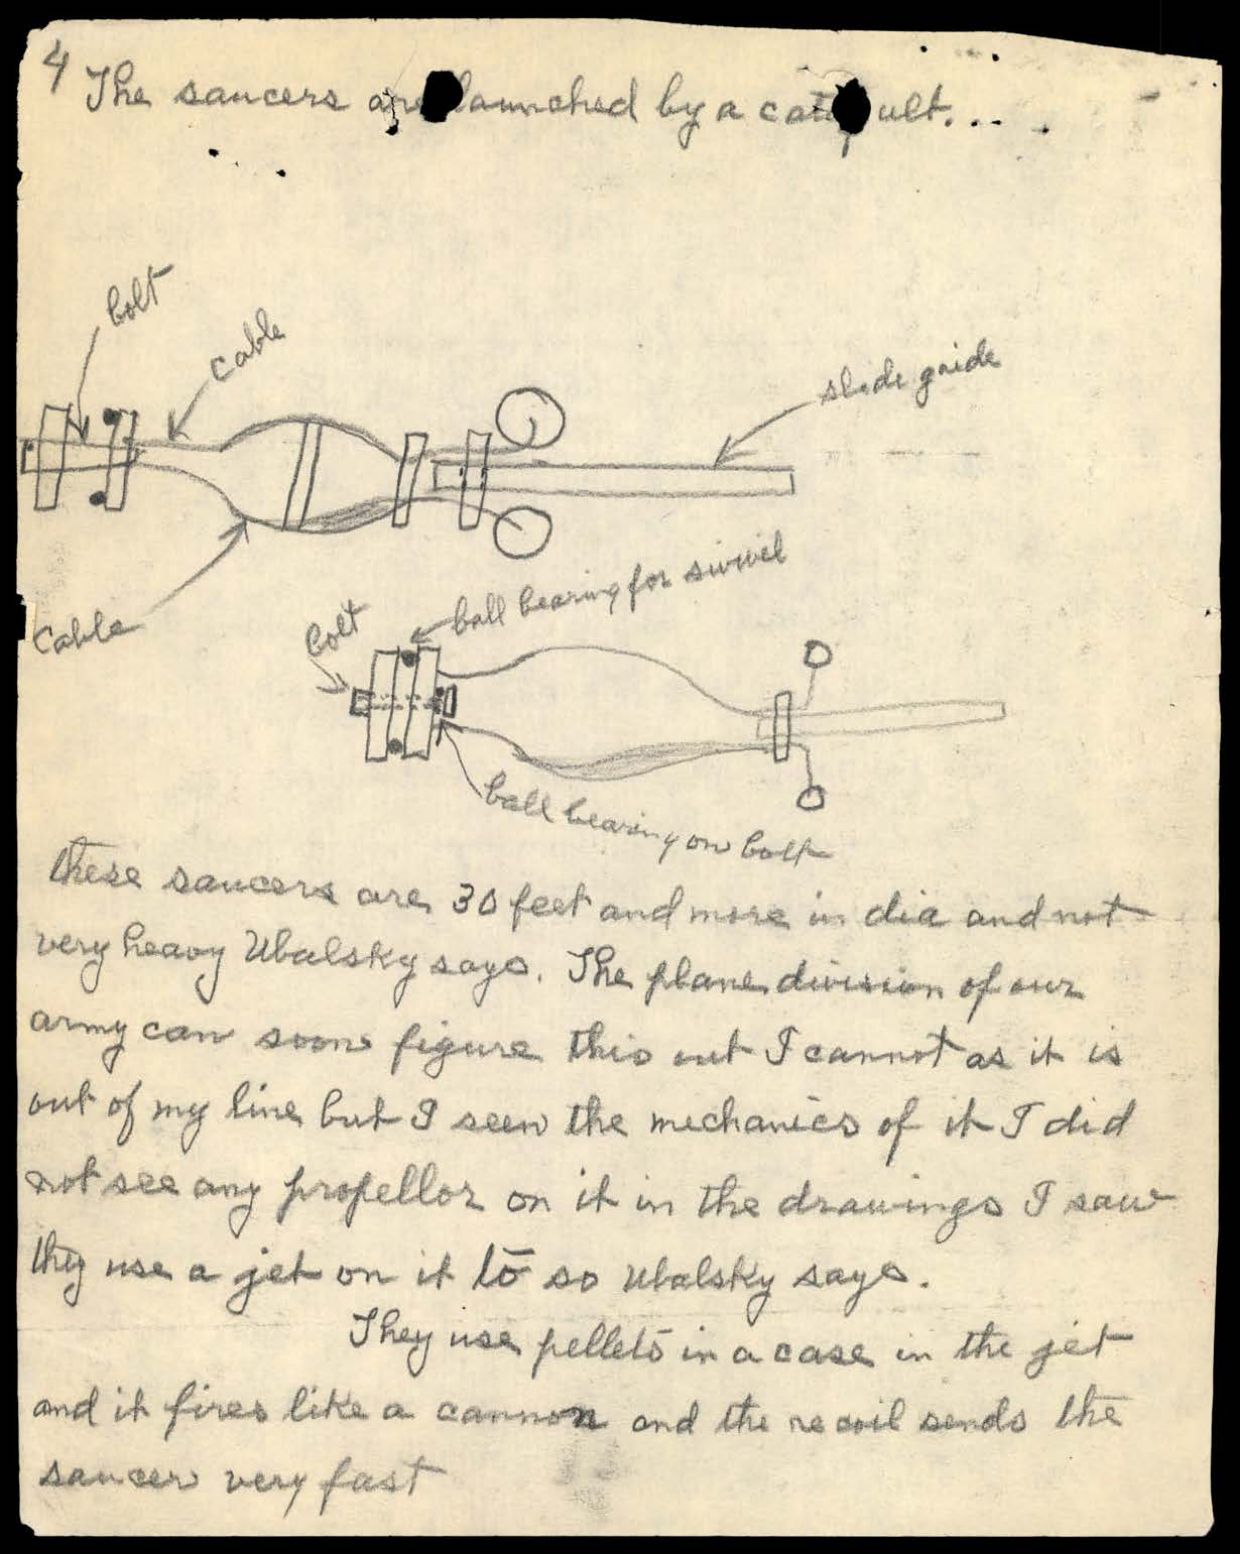 4
The saucers are launched by a catapult...
bolt
cable
slide guide
cable
bolt
ball bearing for swivel
ball bearing on bolt
these saucers are 30 feet and more in dia and not
very heavy Ubalsky says. The plane division of our
army can soon figure this out I cannot as it is
out of my line but I seen the mechanics of it I did
not see any propellor on it in the drawings I saw
they use a jet on it to so Ubalsky says.
They use pellets in a case in the jet
and it fires like a cannon and the recoil sends the
saucer very fast